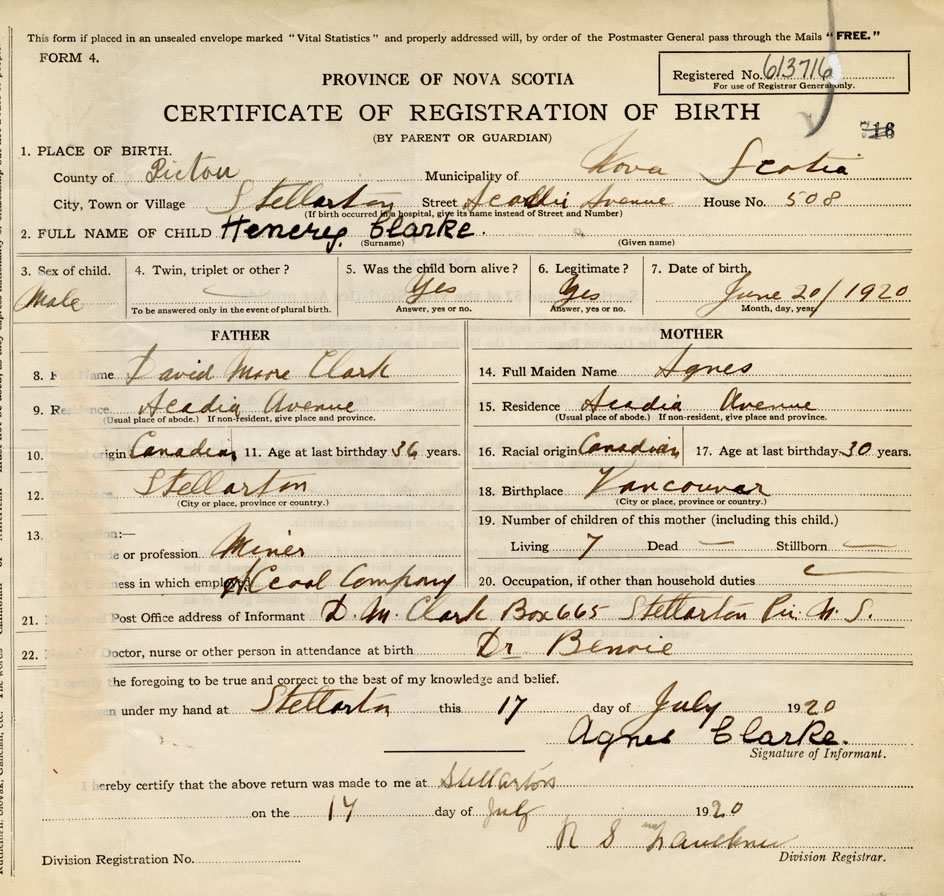 This form if placed in an unsealed envelope marked "Vital Statistics" and properly addressed will, by order of the Postmaster General pass through the Mails "FREE."
FORM 4.
Registered No. 613716
For use of Registrar General only.
PROVINCE OF NOVA SCOTIA
CERTIFICATE OF REGISTRATION OF BIRTH
(BY PARENT OR GUARDIAN)
716
1. PLACE OF BIRTH.
County of Pictou Municipality of Nova Scotia
City, Town or Village Stellarton Street Acadia Avenue House No. 508
(If birth occurred in a hospital, give its name instead of Street and Number)
2. FULL NAME OF CHILD Henerey. Clarke.
(Surname) (Given name)
3. Sex of child. 4. Twin, triplet or other? 5. Was the child born alive? 6. Legitimate? 7. Date of birth
Male Yes Yes June 20/1920
To be answered only in the event of plural birth. Answer, yes or no. Answer, yes or no. Month, day, year,
FATHER MOTHER
8. Full Name David Moore Clark 14. Full Maiden Name Agnes
9. Residence Acadia Avenue 15. Residence Acadia Avenue
(Usual place of abode.) If non-resident, give place and province. (Usual place of abode.) If non-resident, give place and province.
10. origin Canadian 11. Age at last birthday 36 years. 16. Racial origin Canadian 17. Age at last birthday 30 years.
12. Birthplace Stellarton 18. Birthplace Vancouvar
(City or place, province or country.) (City or place, province or country.)
19. Number of children of this mother (including this child.)
13. Occupation:—
Trade or profession Miner Living 7 Dead — Stillborn —
Business in which employed A Coal Company 20. Occupation, if other than household duties
21. Post Office address of Informant D. M. Clark Box 665 Stellarton Pic. N. S.
22. Doctor, nurse or other person in attendance at birth Dr Benvie
the foregoing to be true and correct to the best of my knowledge and belief.
Given under my hand at Stellarton this 17 day of July 1920
Agnes Clarke.
Signature of Informant.
I hereby certify that the above return was made to me at Stellarton
on the 17 day of July 1920
R S Faulkner
Division Registration No. Division Registrar.